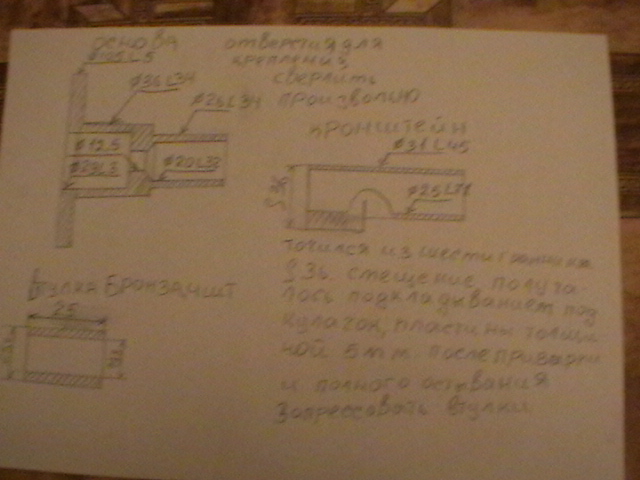 основа
отверстия для
крепления
сверлить
произволью
⌀36L34
⌀26L34
⌀12.5
⌀20L32
кронштейн
⌀31L45
S36
точился из шестигранника
S36. смещение получа-
лось подкладыванием под
кулачок, пластины толщи
ной 5мм. после приварки
и полного остывания
запрессовать втулки
втулка бронза, 4шт
25